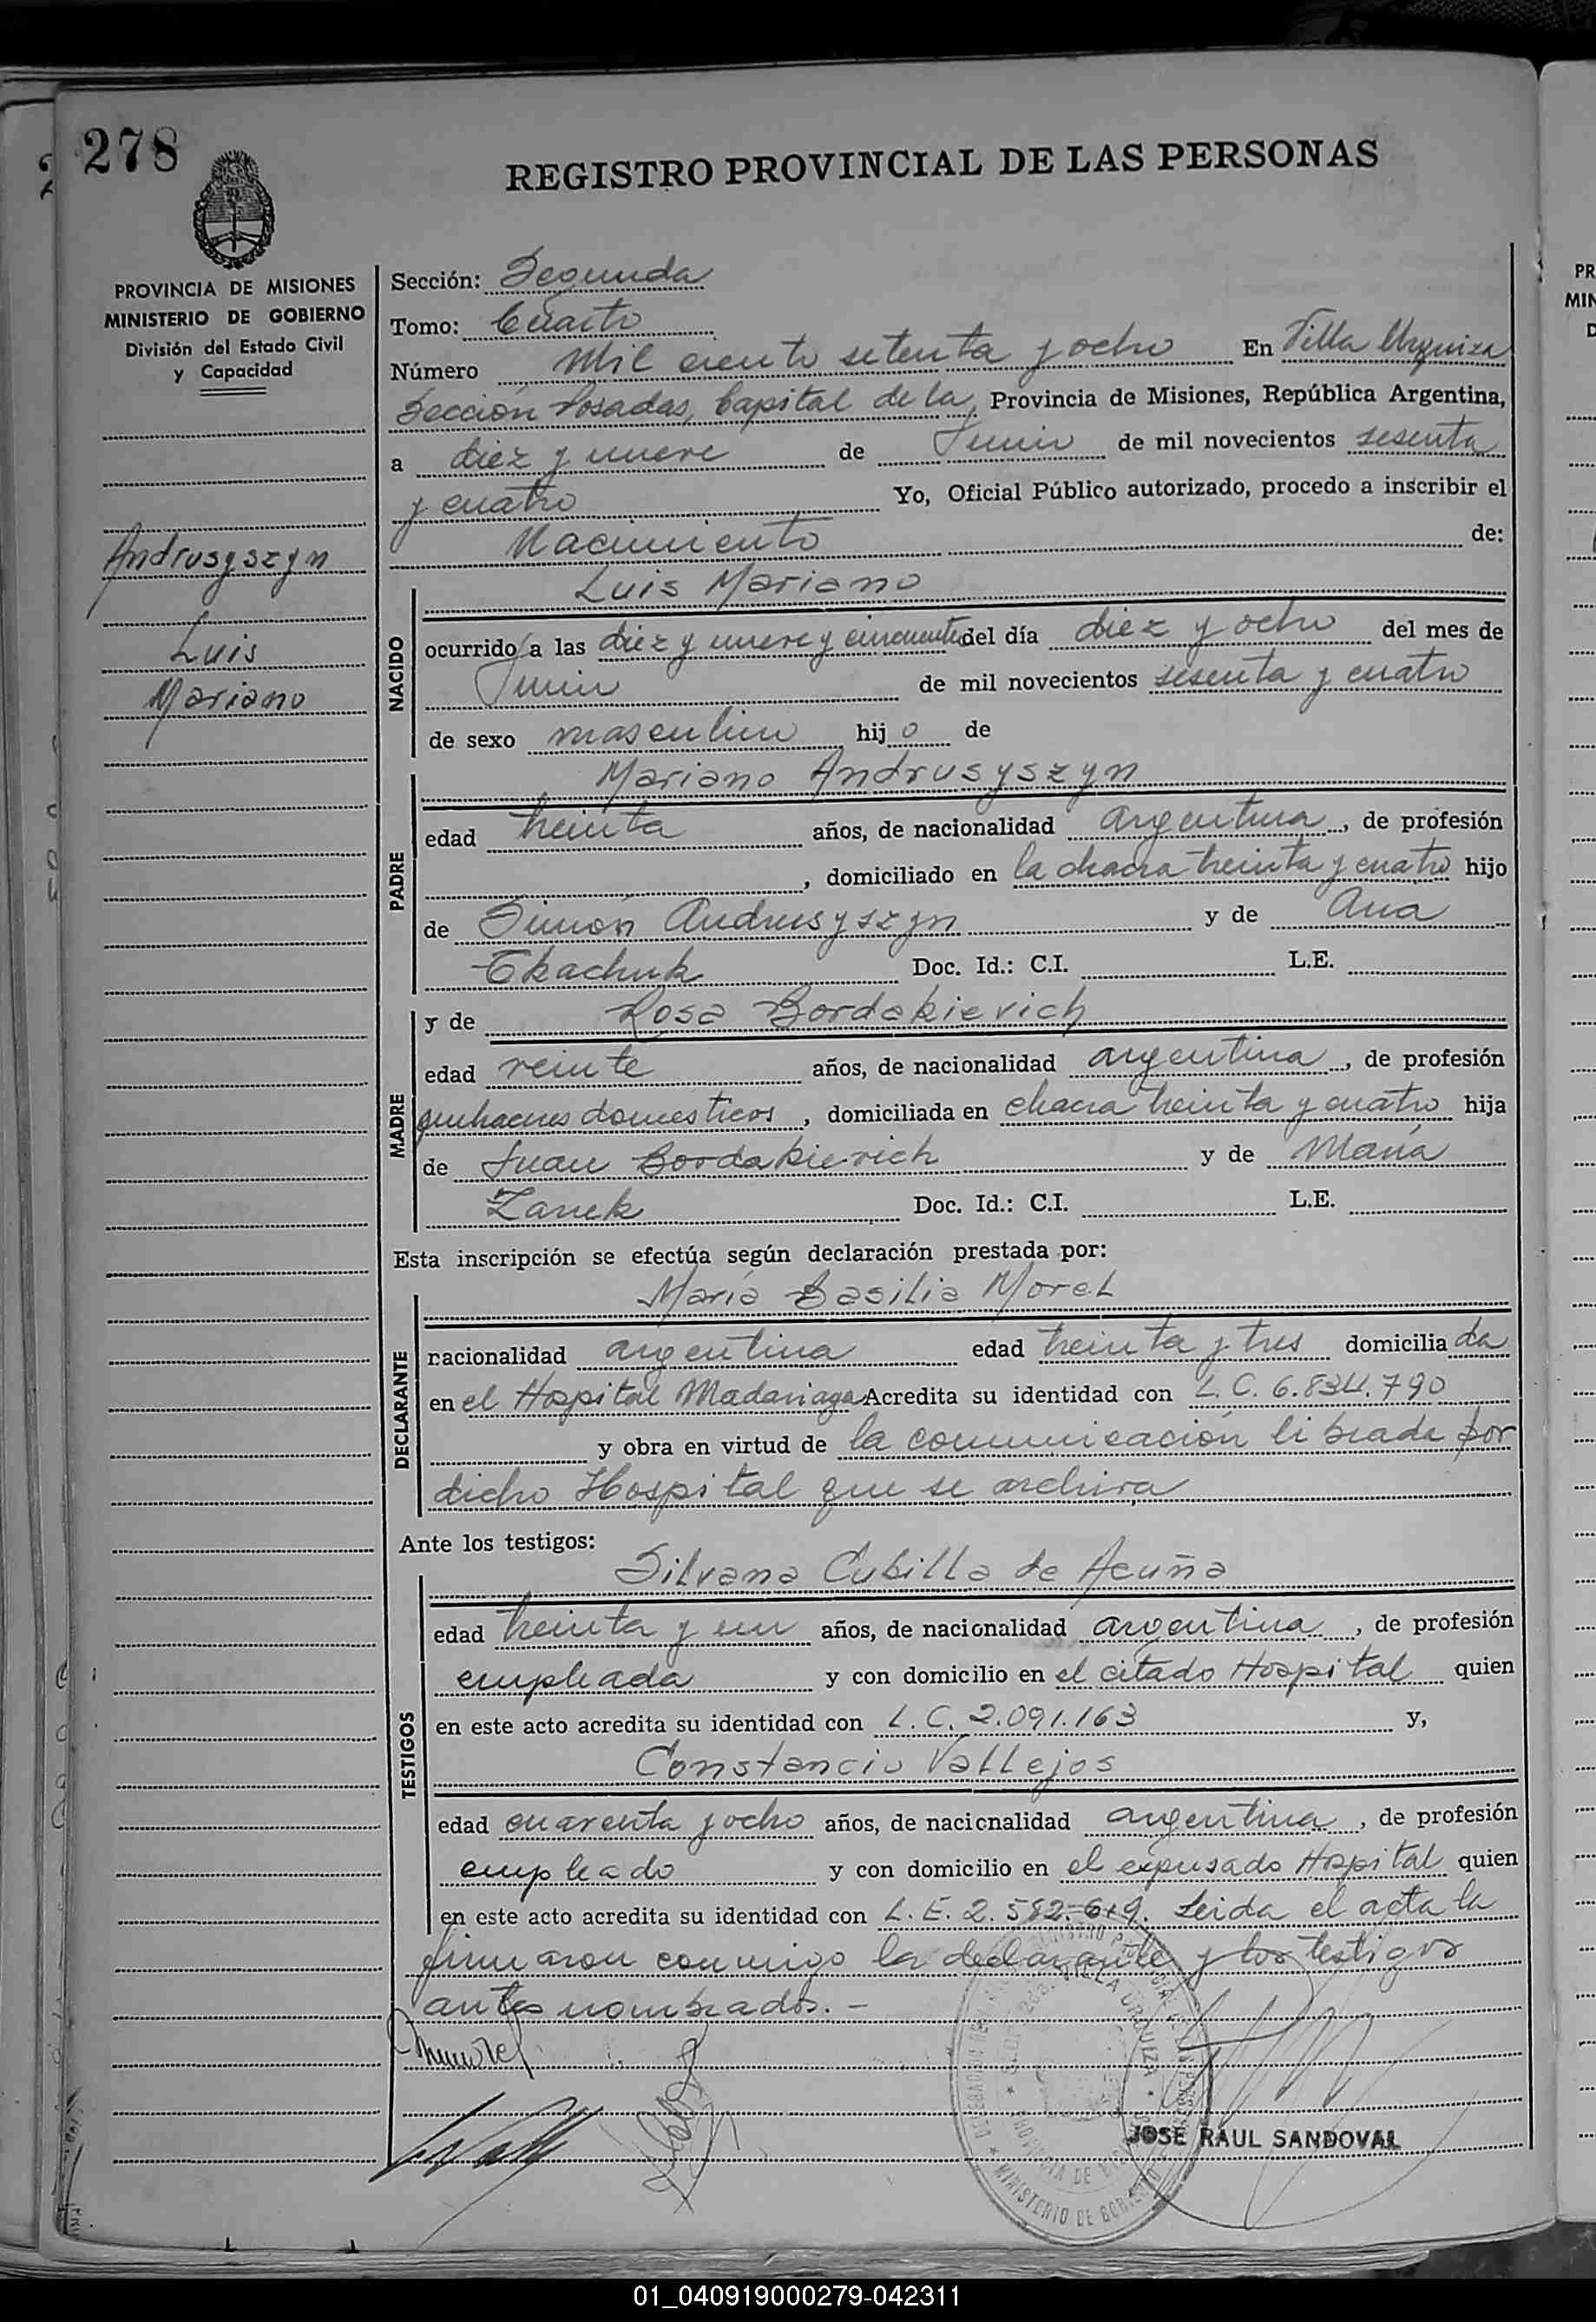 278
REGISTRO PROVINCIAL DE LAS PERSONAS
PROVINCIA DE MISIONES
MINISTERIO DE GOBIERNO
División del Estado Civil
y Capacidad
Andrusyszyn
Luis
Mariano
Sección: Segunda
Tomo: Cuarto
Número Mil ciento setenta y ocho En Villa Urquiza
Sección Posadas, Capital de la, Provincia de Misiones, República Argentina,
a diez y nueve de Junio de mil novecientos sesenta
y cuatro Yo, Oficial Público autorizado, procedo a inscribir el
Nacimiento de:
Luis Mariano
NACIDO
ocurrido a las diez y nueve y cincuenta del día diez y ocho del mes de
Junio de mil novecientos sesenta y cuatro
de sexo masculino hijo de
Mariano Andrusyszyn
PADRE
edad treinta años, de nacionalidad argentina, de profesión
, domiciliado en la chacra treinta y cuatro hijo
de Simón Andrusyszyn y de Ana
Tkachuk Doc. Id.: C.I. L.E.
y de Rosa Bordakievich
MADRE
edad veinte años, de nacionalidad argentina, de profesión
quehaceres domesticos, domiciliada en chacra treinta y cuatro hija
de Juan Bordakievich y de María
Zanek Doc. Id.: C.I. L.E.
Esta inscripción se efectúa según declaración prestada por:
María Basilia Morel
DECLARANTE
nacionalidad argentina edad treinta y tres domiciliada
en el Hospital Madariaga Acredita su identidad con L.C. 6.834.790
y obra en virtud de la comunicación librada por
dicho Hospital que se archiva
Ante los testigos:
Silvana Cubilla de Acuña
TESTIGOS
edad treinta y un años, de nacionalidad argentina, de profesión
empleada y con domicilio en el citado Hospital quien
en este acto acredita su identidad con L.C. 2.091.163 y,
Constancio Vallejos
edad cuarenta y ocho años, de nacionalidad argentina, de profesión
empleado y con domicilio en el expresado Hospital quien
en este acto acredita su identidad con L.E. 2. Leida el acta la
firmaron conmigo la declarante y los testigos
antes nombrados.-
JOSE RAUL SANDOVAL
01_040919000279-042311